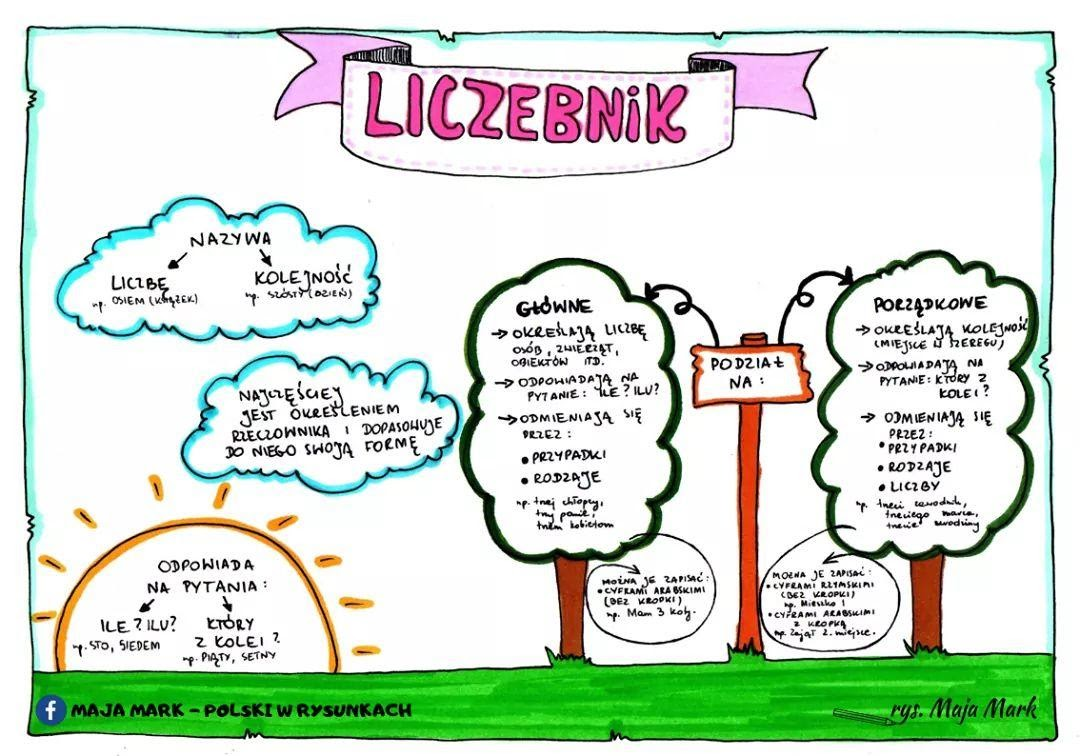 LICZEBNIK
NAZYWA
LICZBĘ
np. OSIEM (KSIĄŻEK)
KOLEJNOŚĆ
np. SZÓSTY (DZIEŃ)
NAJCZĘŚCIEJ
JEST OKREŚLENIEM
RZECZOWNIKA I DOPASOWUJE
DO NIEGO SWOJĄ FORMĘ
ODPOWIADA
NA PYTANIA:
ILE? ILU?
np. STO, SIEDEM
KTÓRY
Z KOLEI?
np. PIĄTY, SETNY
PODZIAŁ
NA:
GŁÓWNE
→ OKREŚLAJĄ LICZBĘ
OSÓB, ZWIERZĄT,
OBIEKTÓW ITD.
→ ODPOWIADAJĄ NA
PYTANIE: ILE? ILU?
→ ODMIENIAJĄ SIĘ
PRZEZ:
• PRZYPADKI
• RODZAJE
np. trzej chłopcy,
trzy panie,
trzem kobietom
MOŻNA JE ZAPISAĆ:
• CYFRAMI ARABSKIMI
(BEZ KROPKI)
np. Mam 3 koty.
PORZĄDKOWE
→ OKREŚLAJĄ KOLEJNOŚĆ
(MIEJSCE W SZEREGU)
→ ODPOWIADAJĄ NA
PYTANIE: KTÓRY Z
KOLEI?
→ ODMIENIAJĄ SIĘ
PRZEZ:
• PRZYPADKI
• RODZAJE
• LICZBY
np. trzeci zawodnik,
trzeciego marca,
trzecie urodziny
MOŻNA JE ZAPISAĆ:
• CYFRAMI RZYMSKIMI
(BEZ KROPKI)
np. Mieszko I
• CYFRAMI ARABSKIMI
Z KROPKĄ
np. Zajął 2. miejsce.
f MAJA MARK – POLSKI W RYSUNKACH
rys. Maja Mark